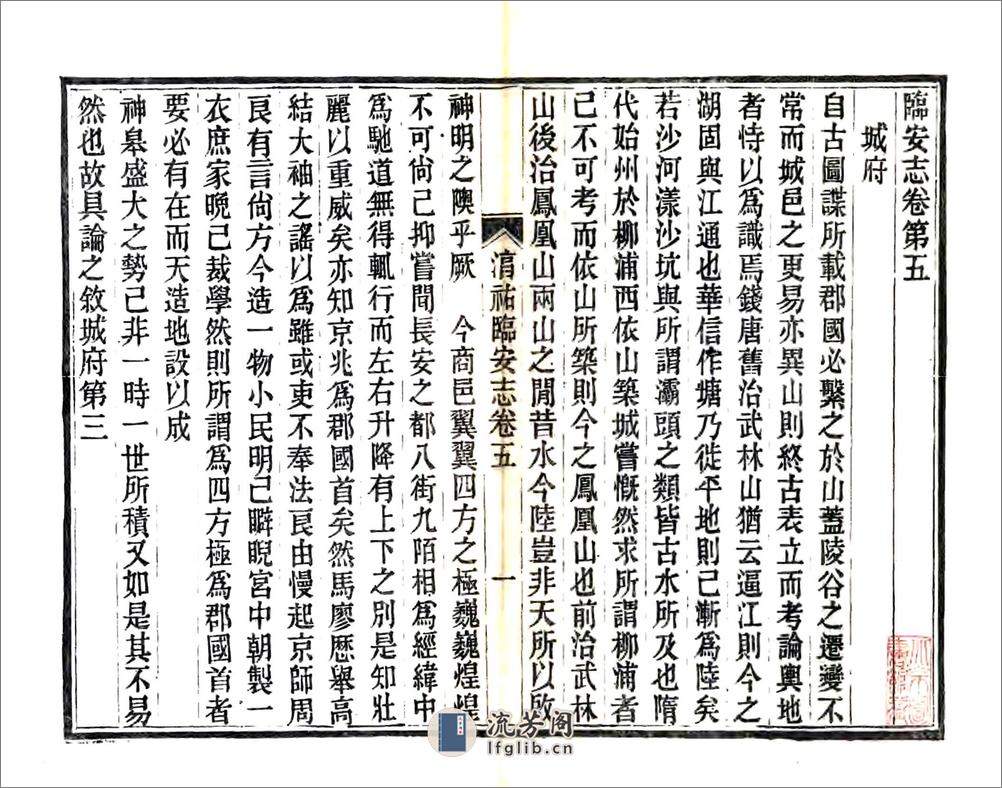 臨安志卷第五
城府
自古圖諜所載郡國必繫之於山蓋陵谷之遷變不
常而城邑之更易亦異山則終古表立而考論輿地
者恃以爲識焉錢唐舊治武林山猶云逼江則今之
湖固與江通也華信作塘乃徙平地則已漸爲陸矣
若沙河漾沙坑與所謂灞頭之類皆古水所及也隋
代始州於柳浦西依山築城嘗慨然求所謂柳浦者
己不可考而依山所築則今之鳳凰山也前治武林
山後治鳳凰山兩山之閒昔水今陸豈非天所以啟
淯祐臨安志卷五
一
神明之隩乎厥 今商邑翼翼四方之極巍巍煌煌
不可尙己抑嘗聞長安之都八街九陌相爲經緯中
爲馳道無得輒行而左右升降有上下之別是知壯
麗以重威矣亦知京兆爲郡國首矣然馬廖歷舉高
結大袖之謠以爲雖或吏不奉法良由慢起京師周
良有言尙方今造一物小民明己睥睨宮中朝製一
衣庶家晩己裁學然則所謂爲四方極爲郡國首者
要必有在而天造地設以成
神皋盛大之勢己非一時一世所積又如是其不易
然也故具論之敘城府第三
流芳阁
lfglib.cn